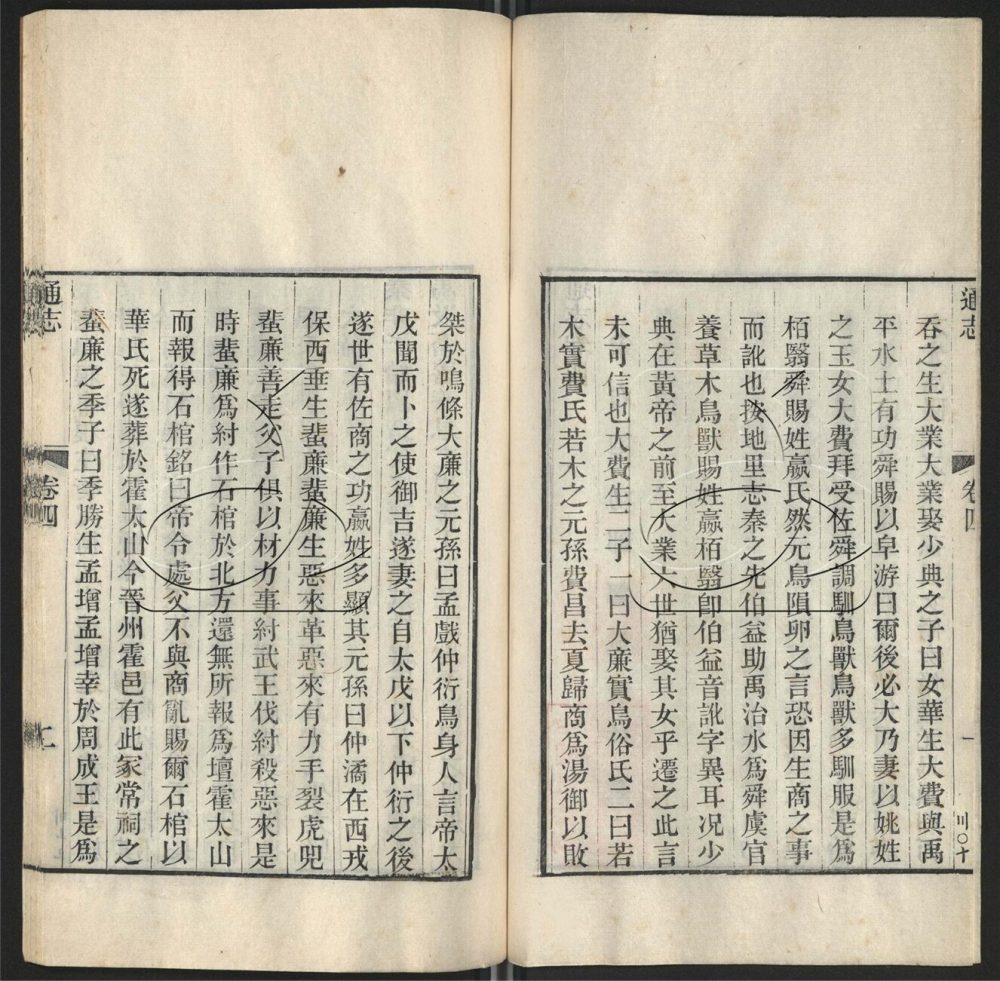 通志
卷四
一
川〇十
吞之生大業大業娶少典之子曰女華生大費與禹
平水土有功舜賜以皁游曰爾後必大乃妻以姚姓
之玉女大費拜受佐舜調馴鳥獸鳥獸多馴服是爲
栢翳舜賜姓嬴氏然元鳥隕卵之言恐因生商之事
而訛也按地里志秦之先伯益助禹治水爲舜虞官
養草木鳥獸賜姓嬴栢翳卽伯益音訛字異耳况少
典在黄帝之前至大業六世猶娶其女乎遷之此言
未可信也大費生二子一曰大廉實鳥俗氏二曰若
木實費氏若木之元孫費昌去夏歸商爲湯御以敗
桀於鳴條大廉之元孫曰孟戲仲衍鳥身人言帝太
戊聞而卜之使御吉遂妻之自太戊以下仲衍之後
遂世有佐商之功嬴姓多顯其元孫曰仲潏在西戎
保西垂生蜚廉蜚廉生惡來革惡來有力手裂虎兕
蜚廉善走父子俱以材力事紂武王伐紂殺惡來是
時蜚廉爲紂作石棺於北方還無所報爲壇霍太山
而報得石棺銘曰帝令處父不與商亂賜爾石棺以
華氏死遂葬於霍太山今晉州霍邑有此冢常祠之
蜚廉之季子曰季勝生孟增孟增幸於周成王是爲
通志
卷四